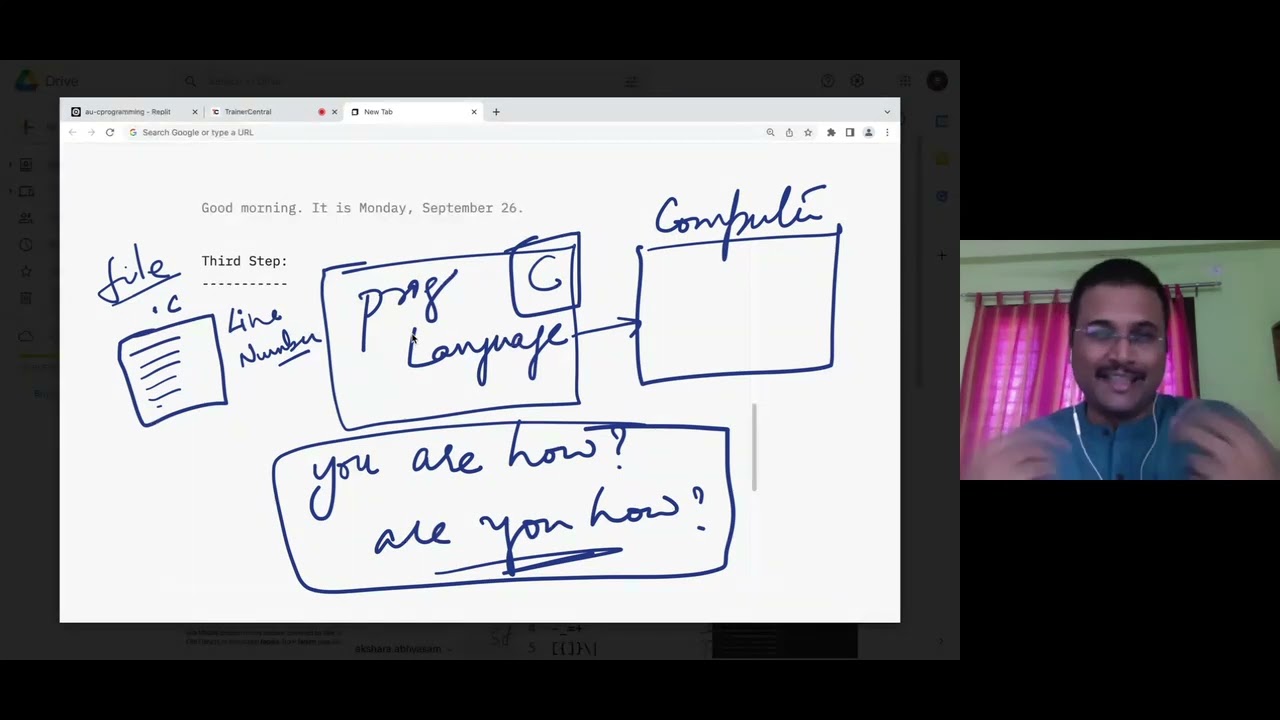 Drive
au-cprogramming - Replit
TrainerCentral
New Tab
Search Google or type a URL
Good morning. It is Monday, September 26.
Computer
file
.C
Third Step:
-----------
Line
Number
prog
Language
C
you are how?
are you how?
akshara.abhyasam
4
5
[{(}]\|